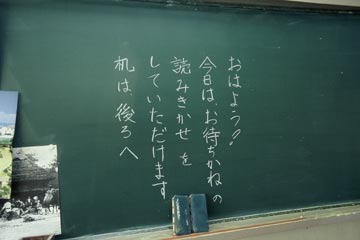 おはよう!!
今日は、お待ちかねの
読みきかせを
していただけます
机は、後ろへ